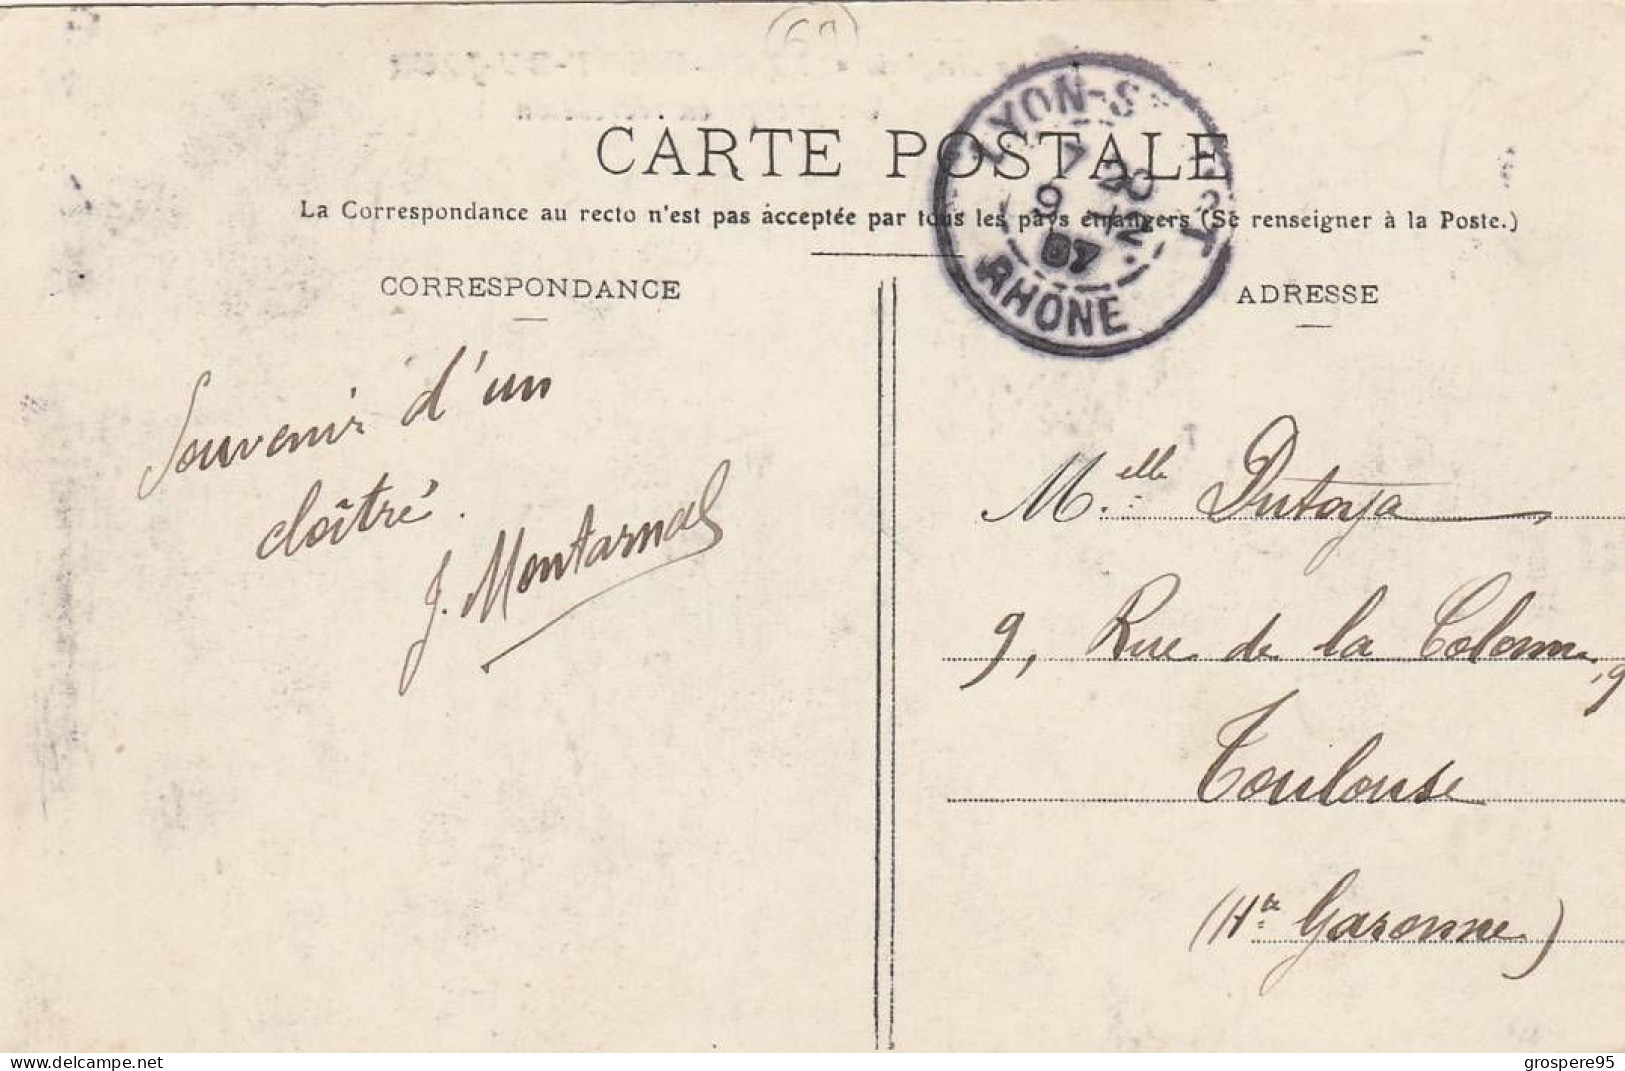 69
CARTE POSTALE
La Correspondance au recto n'est pas acceptée par tous les pays étrangers (Se renseigner à la Poste.)
LYON-St
7 20
9 - 12
07
RHONE
CORRESPONDANCE
Souvenir d'un
cloîtré.
J. Montarnal
ADRESSE
M.elle Dutoya
9, Rue de la Colonne, 9
Toulouse
(Hte Garonne)
www.delcampe.net
grospere95